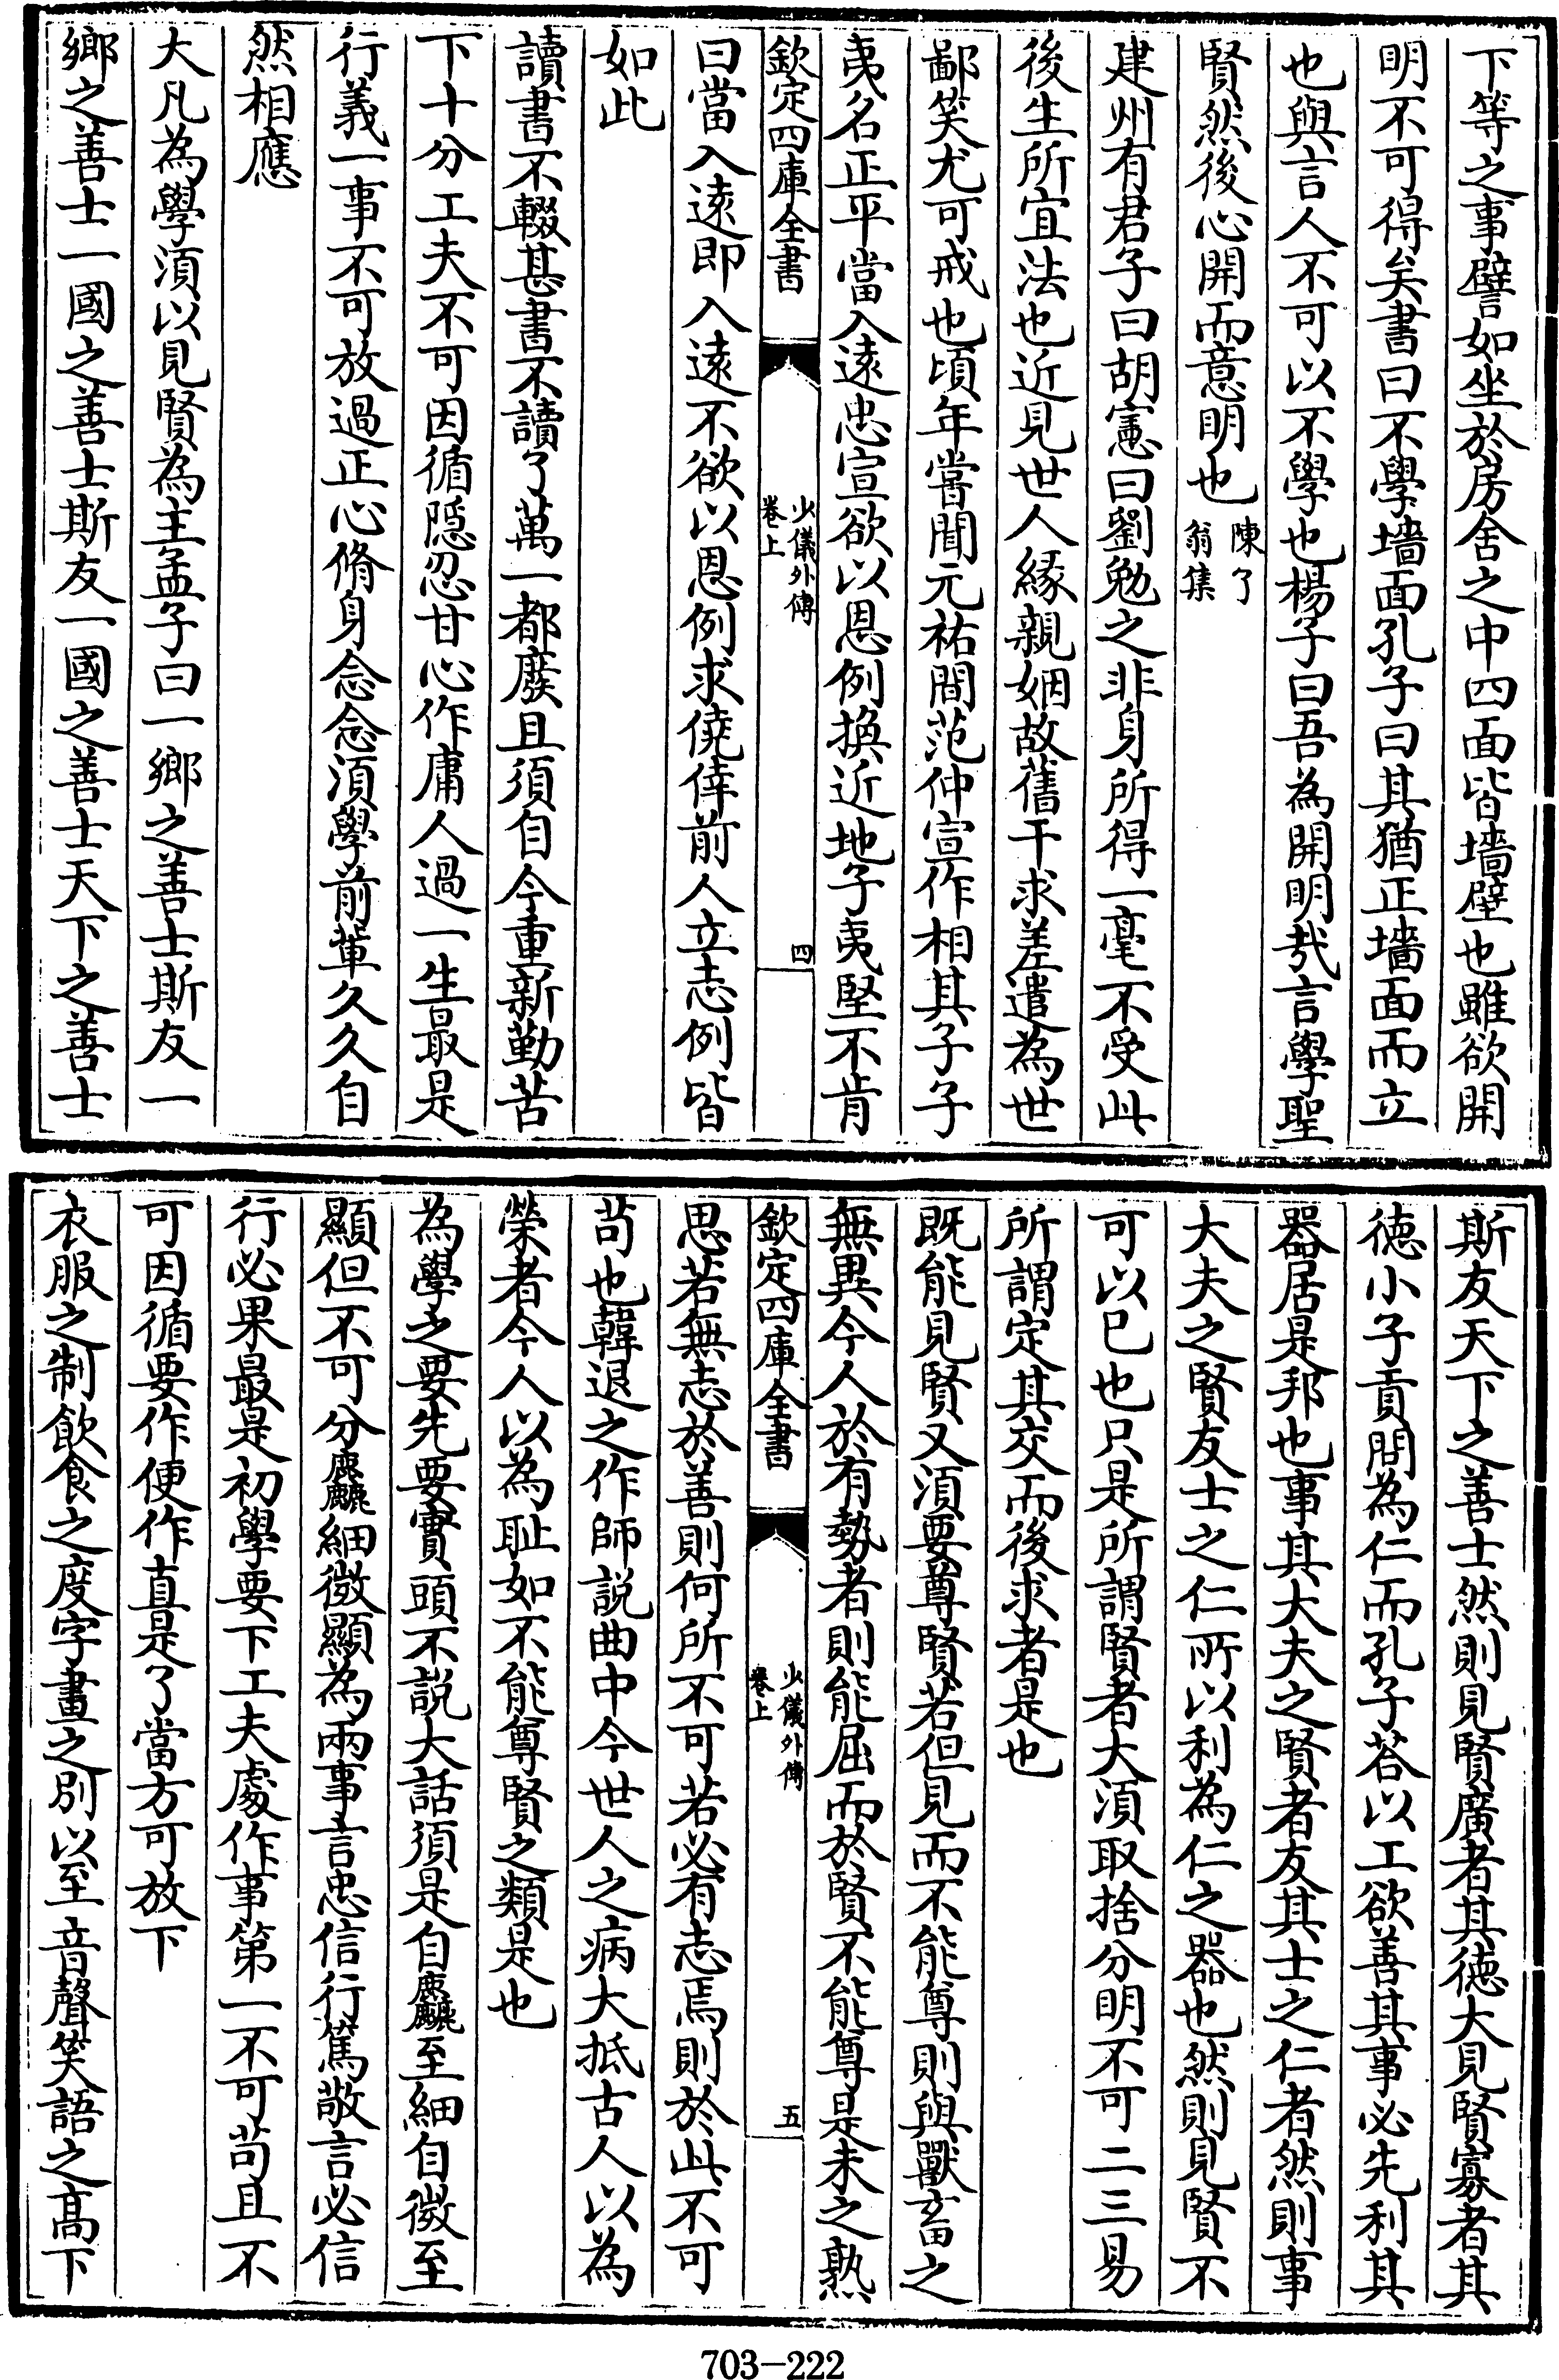 下等之事譬如坐於房舍之中四面皆墻壁也雖欲開
明不可得矣書曰不學墻面孔子曰其猶正墻面而立
也與言人不可以不學也楊子曰吾為開明哉言學聖
賢然後心開而意明也陳了翁集
建州有君子曰胡憲曰劉勉之非身所得一毫不受此
後生所宜法也近見世人緣親姻故舊干求差遣為世
鄙笑尤可戒也頃年嘗聞元祐間范仲宣作相其子子
夷名正平當入遠忠宣欲以恩例換近地子夷堅不肯
欽定四庫全書
少儀外傳
卷上
四
曰當入遠即入遠不欲以恩例求僥倖前人立志例皆
如此
讀書不輟甚書不讀了萬一都廢且須自今重新勤苦
下十分工夫不可因循隱忍甘心作庸人過一生最是
行義一事不可放過正心脩身念念湏學前輩久久自
然相應
大凡為學湏以見賢為主孟子曰一鄉之善士斯友一
鄉之善士一國之善士斯友一國之善士天下之善士
斯友天下之善士然則見賢廣者其徳大見賢寡者其
徳小子貢問為仁而孔子荅以工欲善其事必先利其
器居是邦也事其大夫之賢者友其士之仁者然則事
大夫之賢友士之仁所以利為仁之器也然則見賢不
可以已也只是所謂賢者大湏取捨分明不可二三易
所謂定其交而後求者是也
既能見賢又湏要尊賢若但見而不能尊則與獸畜之
無異今人於有勢者則能屈而於賢不能尊是未之熟
欽定四庫全書
少儀外傳
卷上
五
思若無志於善則何所不可若必有志焉則於此不可
苟也韓退之作師説曲中今世人之病大抵古人以為
榮者今人以為耻如不能尊賢之類是也
為學之要先要實頭不説大話須是自麤至細自微至
顯但不可分麤細微顯為兩事言忠信行篤敬言必信
行必果最是初學要下工夫處作事第一不可苟且不
可因循要作便作直是了當方可放下
衣服之制飲食之度字畫之別以至音聲笑語之髙下
703-222